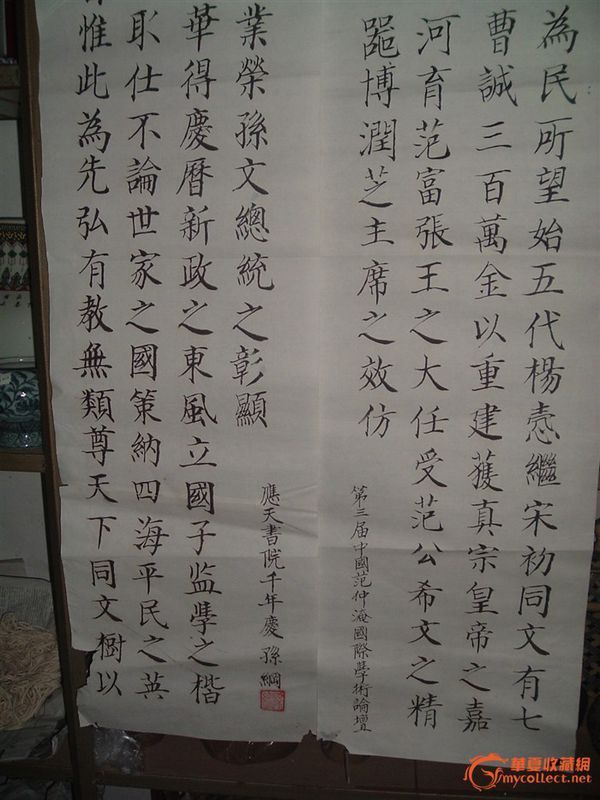 為民所望始五代楊愨繼宋初同文有七
曹誠三百萬金以重建獲真宗皇帝之嘉
河育范富張王之大任受范公希文之精
噐博潤芝主席之效仿
第三届中國范仲淹國際學術論壇
惟此為先弘有教無類尊天下同文樹以
取仕不論世家之國策納四海平民之英
華得慶曆新政之東風立國子监學之楷
業榮孫文總統之彰顯
應天書院千年慶 孫綱
華夏收藏網
mycollect.net